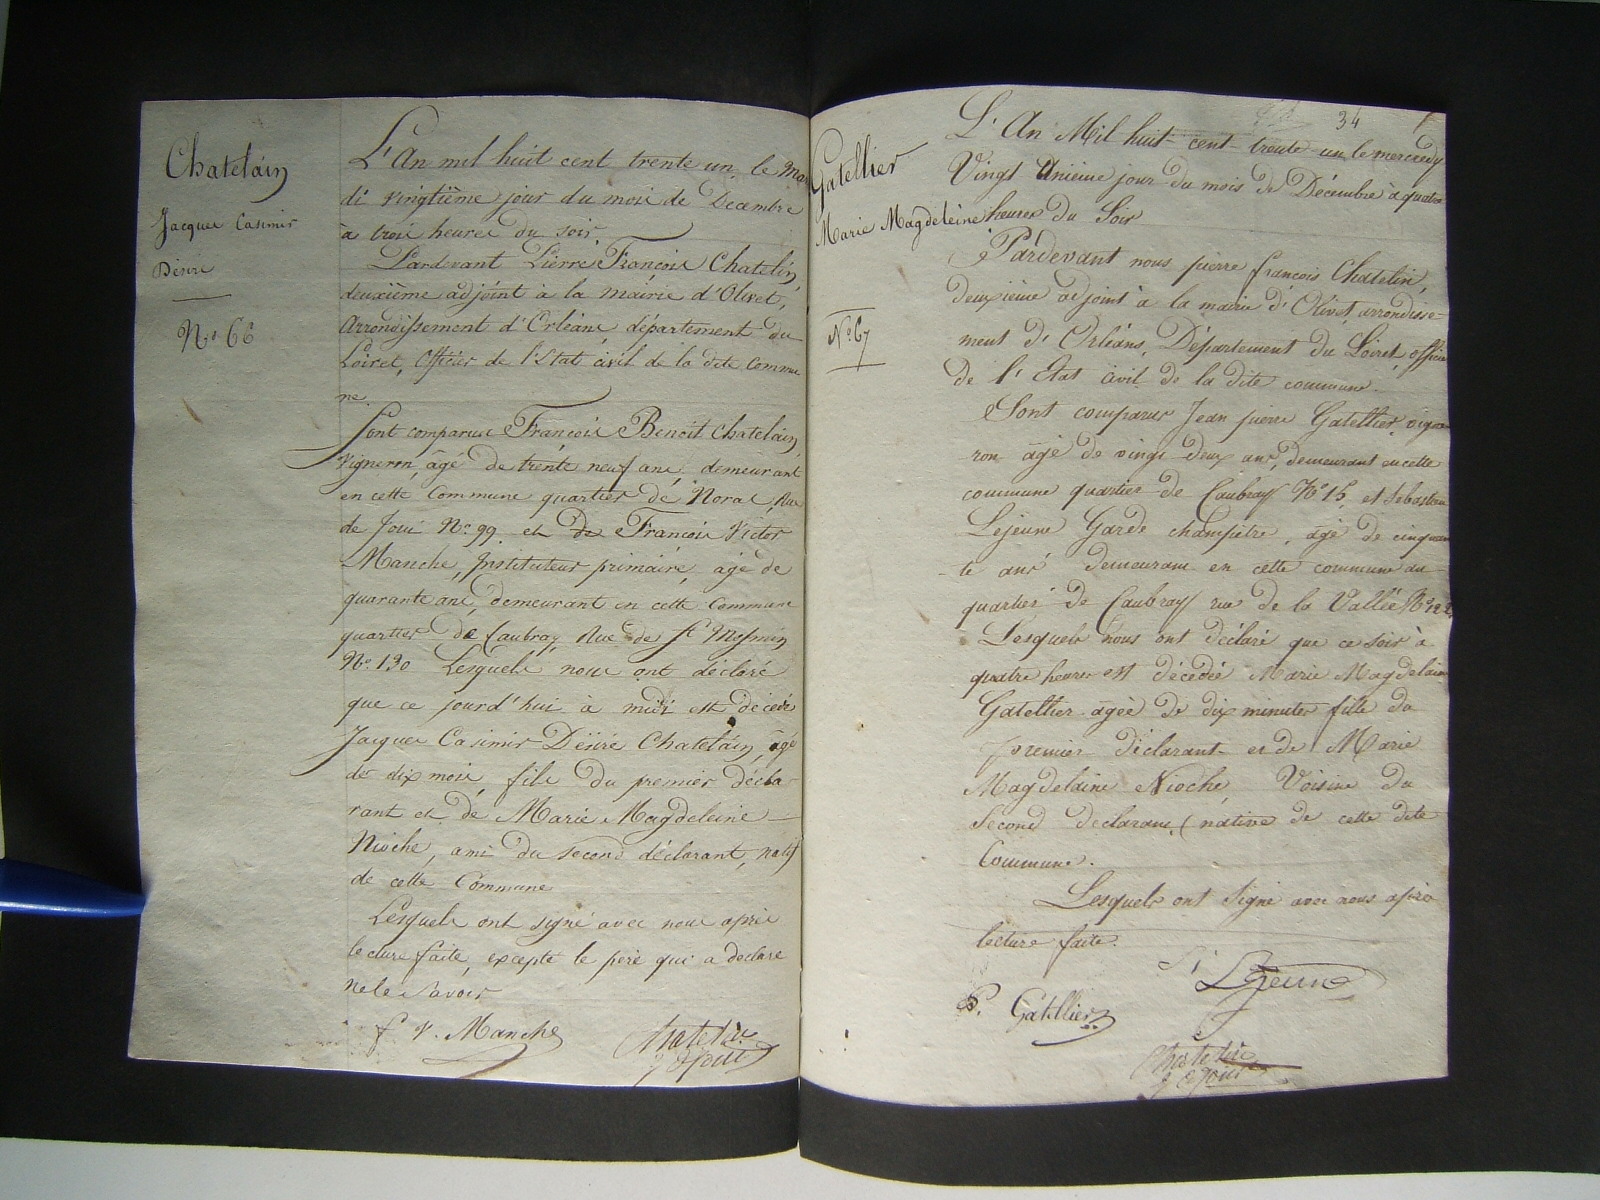 Chatelain
Jacques Casimir
Désiré
No. 66
L'An mil huit cent trente un, le mar
di vingtième jour du mois de Decembre
à trois heures du soir,
Pardevant Pierre François Chatelin,
deuxième adjoint à la mairie d'Olivet,
Arrondissement d'Orléans, département du
Loiret, Officier de l'Etat civil de la dite Commu
ne.
Sont comparus François Benoit Chatelain,
Vigneron, âgé de trente neuf ans, demeurant
en cette Commune quartier de Noras, Rue
de Joui No. 99. et de François Victor
Manche, Instituteur primaire, âgé de
quarante ans, demeurant en cette Commune
quartier de Caubray, Rue de St. Mesmin
No. 130 Lesquels nous ont déclaré
que ce jourd'hui à midi est décédé
Jacques Casimir Désiré Chatelain, âgé
de dix mois, fils du premier décla-
rant et de Marie Magdeleine
Nioche, ami du second déclarant, natif
de cette Commune
Lesquels ont signé avec nous après
lecture faite, excepté le père qui a declare
ne le savoir
f. v. Manche
Chatelin
adjoint
34
Gatellier
Marie Magdeleine
No. 67
L'An Mil huit-cent-trente-un, le mercredy
Vingt Unième jour du mois de Décembre à quatre
heures du Soir
Pardevant nous pierre françois Chatelin,
Deuxième adjoint à la mairie d'Olivet, arrondisse-
ment d'Orléans, Département du Loiret, officier
de l'Etat Civil de la dite commune.
Sont comparus Jean pierre Gatellier, vigne-
ron âgé de vingt deux ans, demeurant en cette
commune quartier de Caubray No. 15, et Sebastien
Lejeune Garde champêtre, âgé de cinquan
te ans demeurant en cette commune au
quartier de Caubray rue de la Vallée No. 122
Lesquels nous ont déclaré que ce soir à
quatre heures est décédée Marie Magdelaine
Gatellier âgée de dix minutes fille du
premier déclarant et de Marie
Magdelaine Nioche, Voisine du
Second declarant, (native de cette dite
Commune.
Lesquels ont Signé avec nous après
lecture faite.
S. Lejeune
P. Gatellier
Chatelin
adjoint